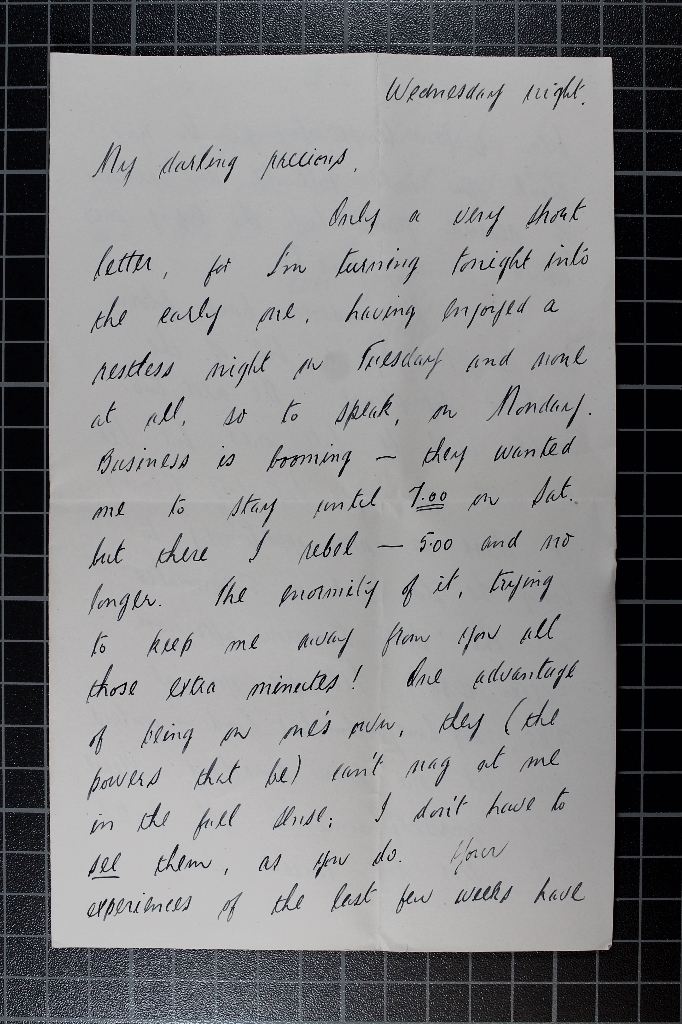 Wednesday night.
My darling precious,
Only a very short
letter, for I'm turning tonight into
the early one, having enjoyed a
restless night on Tuesday and none
at all, so to speak, on Monday.
Business is booming — they wanted
me to stay until 7.00 on Sat.
but there I rebel — 5.00 and no
longer. The enormity of it, trying
to keep me away from you all
those extra minutes! One advantage
of being on one's own, they (the
powers that be) can't nag at me
in the full sense; I don't have to
see them, as you do. Your
experiences of the last few weeks have